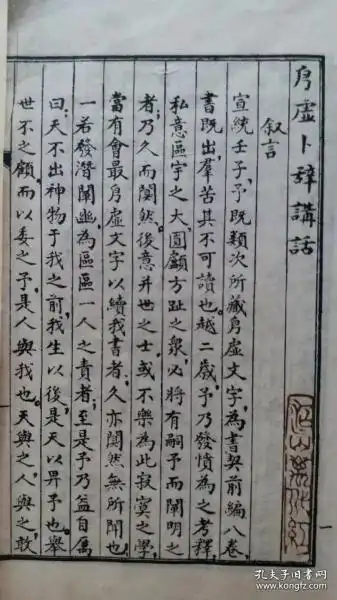 㐆虚卜辞講話
叙言
宣統壬子，予既類次所藏㐆虚文字，為書契前編八卷，
書既出，羣苦其不可讀也。越二歲，予乃發憤為之考釋
私意區宇之大，圓顱方趾之衆，必將有嗣予而闡明之
者；乃久而闃然。後意并世之士，或不樂為此寂寞之學，
當有會最㐆虚文字以續我書者；久亦闃然無所聞也，
一若發潛闡幽，為區區一人之責者；至是予乃益自厲
曰：天不出神物于我之前，我生以後，是天以畀予也。舉
世不之顧，而以委之予，是人與我也。天與之，人與之，敢
一
孔夫子旧书网